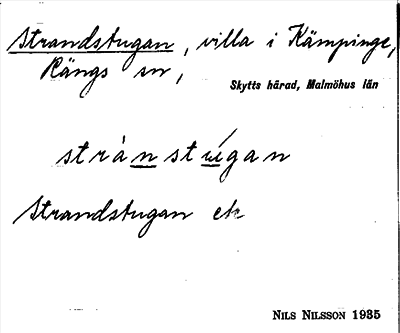 Strandstugan, villa i Kämpinge,
Rängs sn,
Skytts härad, Malmöhus län
strànstúgan
Strandstugan ek
NILS NILSSON 1935